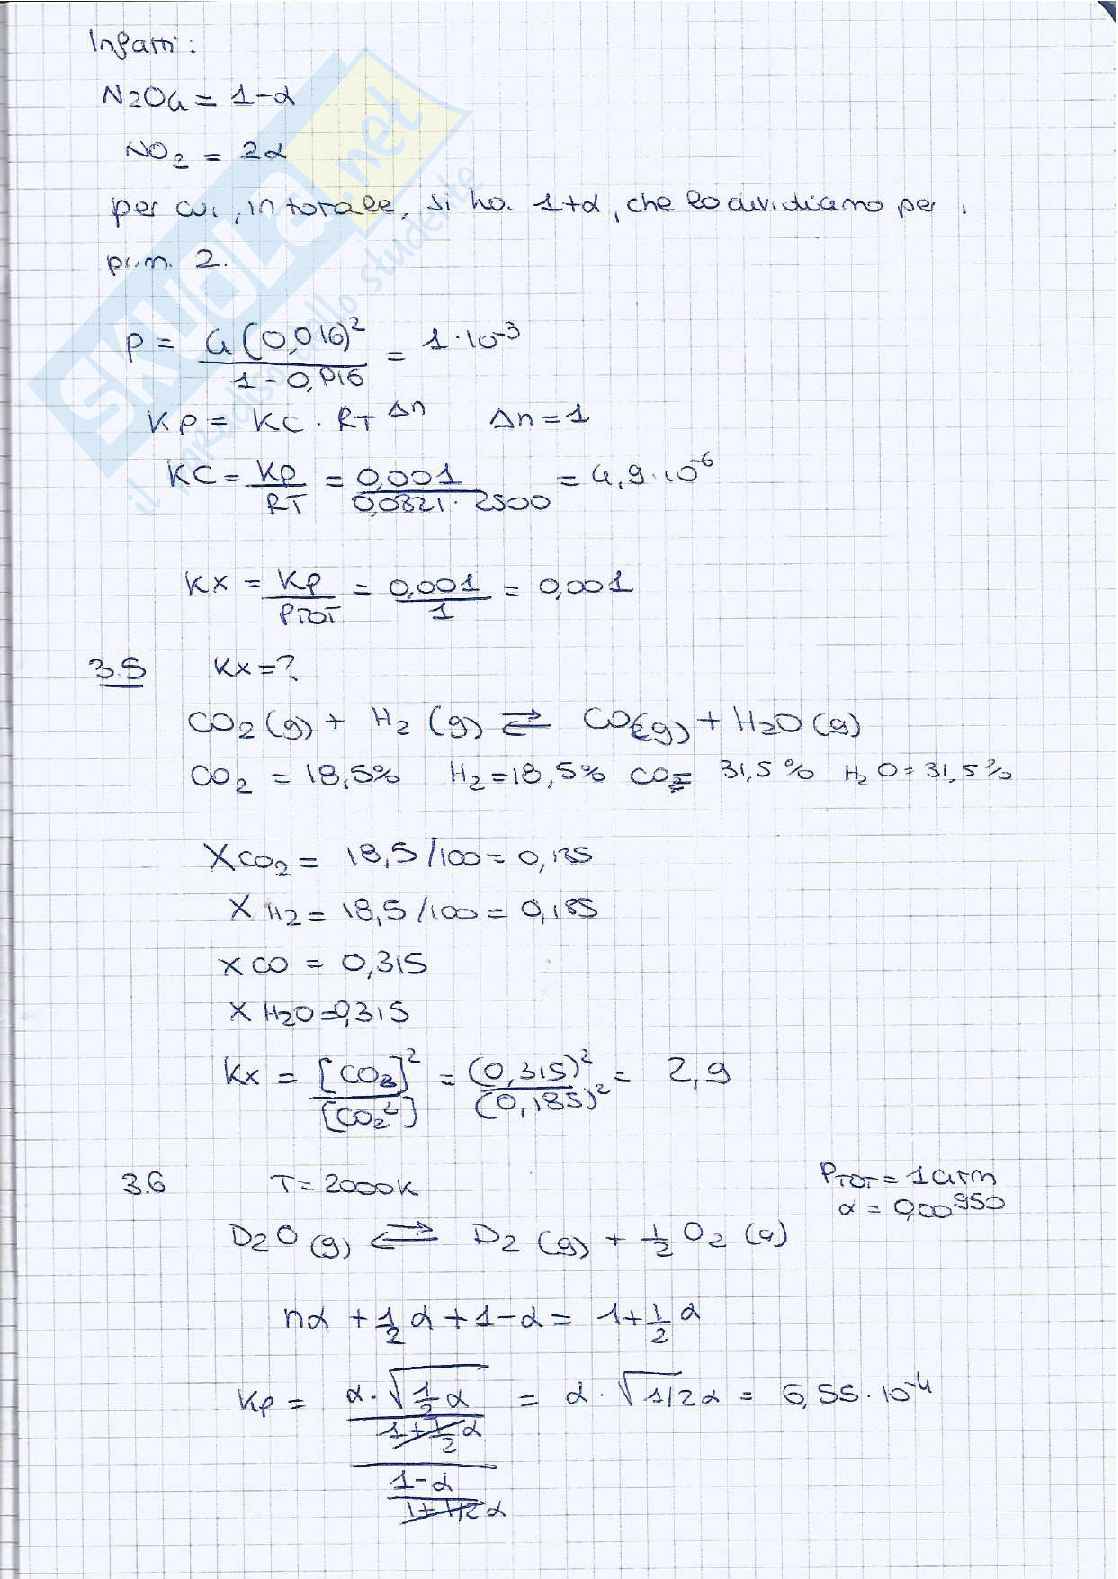 Infatti:
N2O4 = 1-α
NO2 = 2α
per cui, in totale, si ha 1+α, che lo dividiamo per
p.m. 2.
P = 4(0,016)² / 1 - 0,016 = 1·10⁻³
KP = KC · RT^Δn   Δn = 1
KC = KP / RT = 0,001 / 0,0821 · 2500 = 4,9·10⁻⁶
KX = KP / PTOT = 0,001 / 1 = 0,001
3.5   KX = ?
CO2 (g) + H2 (g) ⇄ CO(g) + H2O (g)
CO2 = 18,5%   H2 = 18,5%   CO = 31,5%   H2O = 31,5%
XCO2 = 18,5/100 = 0,185
XH2 = 18,5/100 = 0,185
XCO = 0,315
XH2O = 0,315
KX = [CO2]² / [CO2²] = (0,315)² / (0,185)² = 2,9
3.6   T = 2000K   PTOT = 1 atm
α = 0,00950
D2O (g) ⇄ D2 (g) + 1/2 O2 (g)
nα + 1/2 α + 1-α = 1 + 1/2 α
KP = α · √1/2 α / 1 + 1/2 α / 1-α / 1 + 1/2 α = α · √1/2 α = 6,55·10⁻⁴
SKUOLA.net
il migliore dello studente